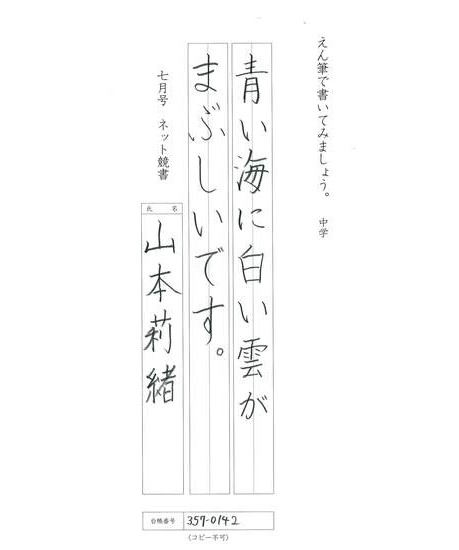 えん筆で書いてみましょう。 中学
青い海に白い雲が
まぶしいです。
七月号 ネット競書
氏名
山本莉緒
台帳番号 357-0142
(コピー不可)